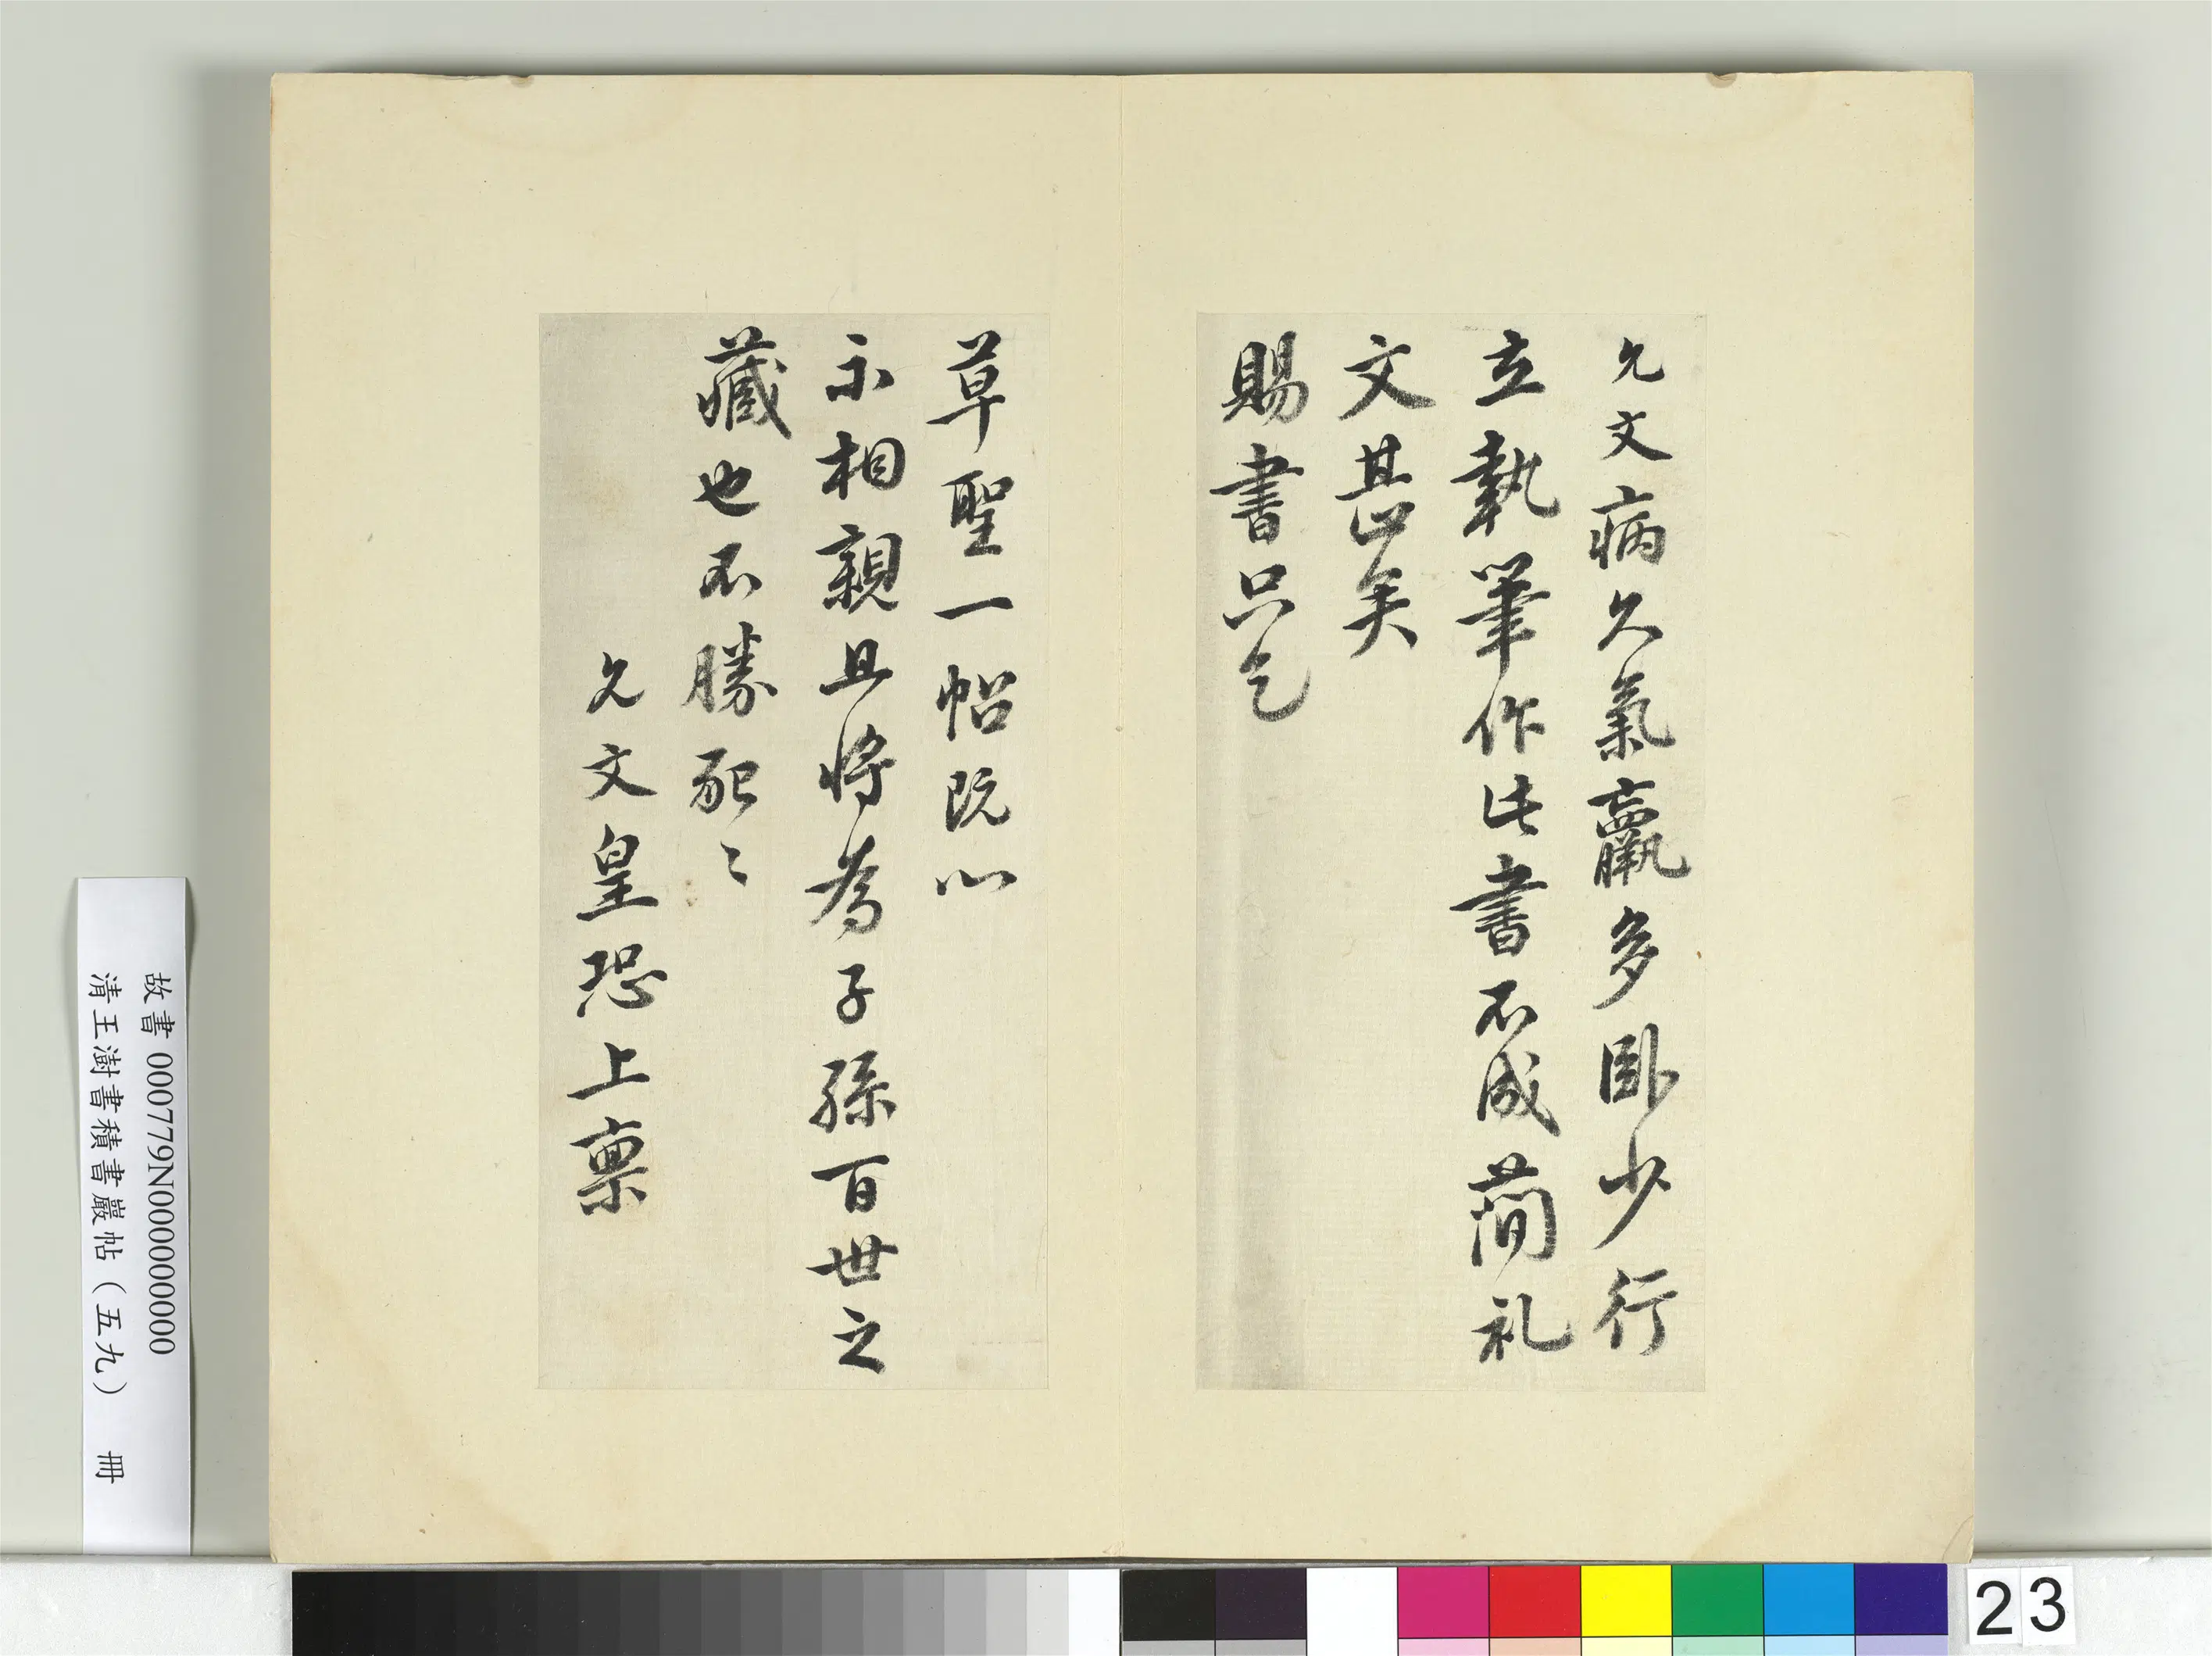 允文病久氣羸多臥少行
立執筆作此書不成蕳礼
文甚矣
賜書只乞
草聖一帖既以
示相親且將為子孫百世之
藏也不勝死〻
允文皇恐上稟
故書 000779N000000000
清王澍書積書巖帖（五九） 冊
23